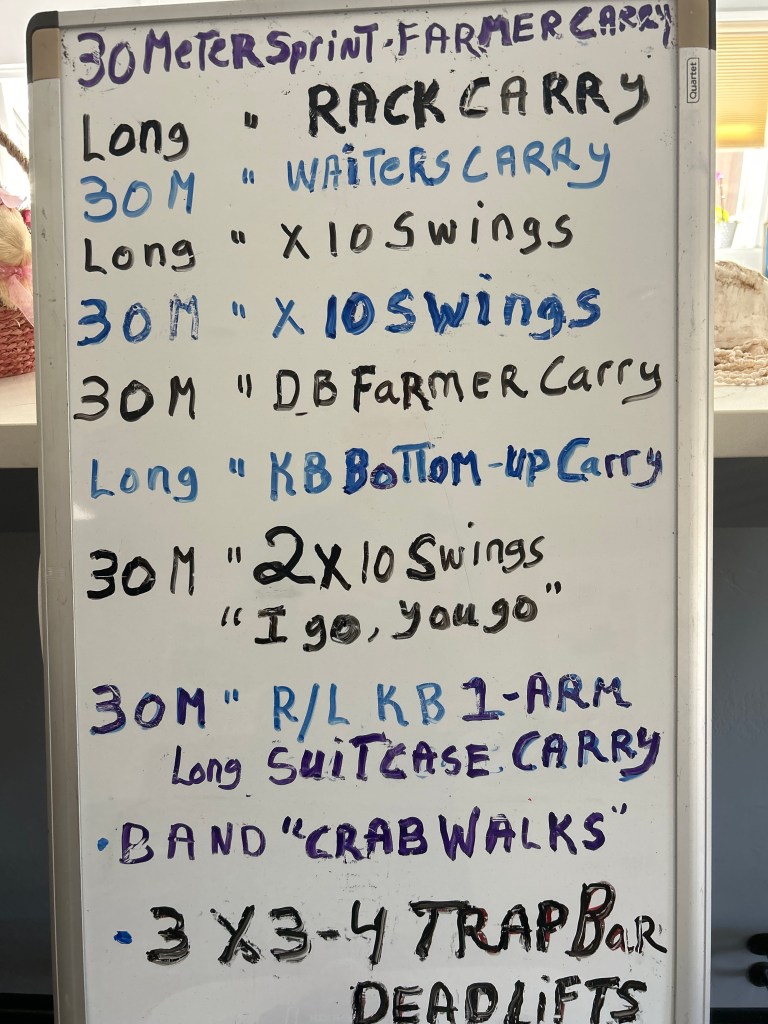 30 MeTeR Sprint - FARMER CARRY
Quartet
Long " RACK CARRY
30 M " WAiTeRS CARRy
Long " X 10 Swings
30 M " X 10 Swings
30 M " DB FaRMER Carry
Long " KB BoTTom-up Carry
30 M " 2 X 10 Swings
"I go, you go"
30 M " R/L KB 1-ARM
Long SUiTCASE CARRY
• BAND "CRAB WALKS"
• 3 X 3-4 TRAP BaR
DEADLiFTS